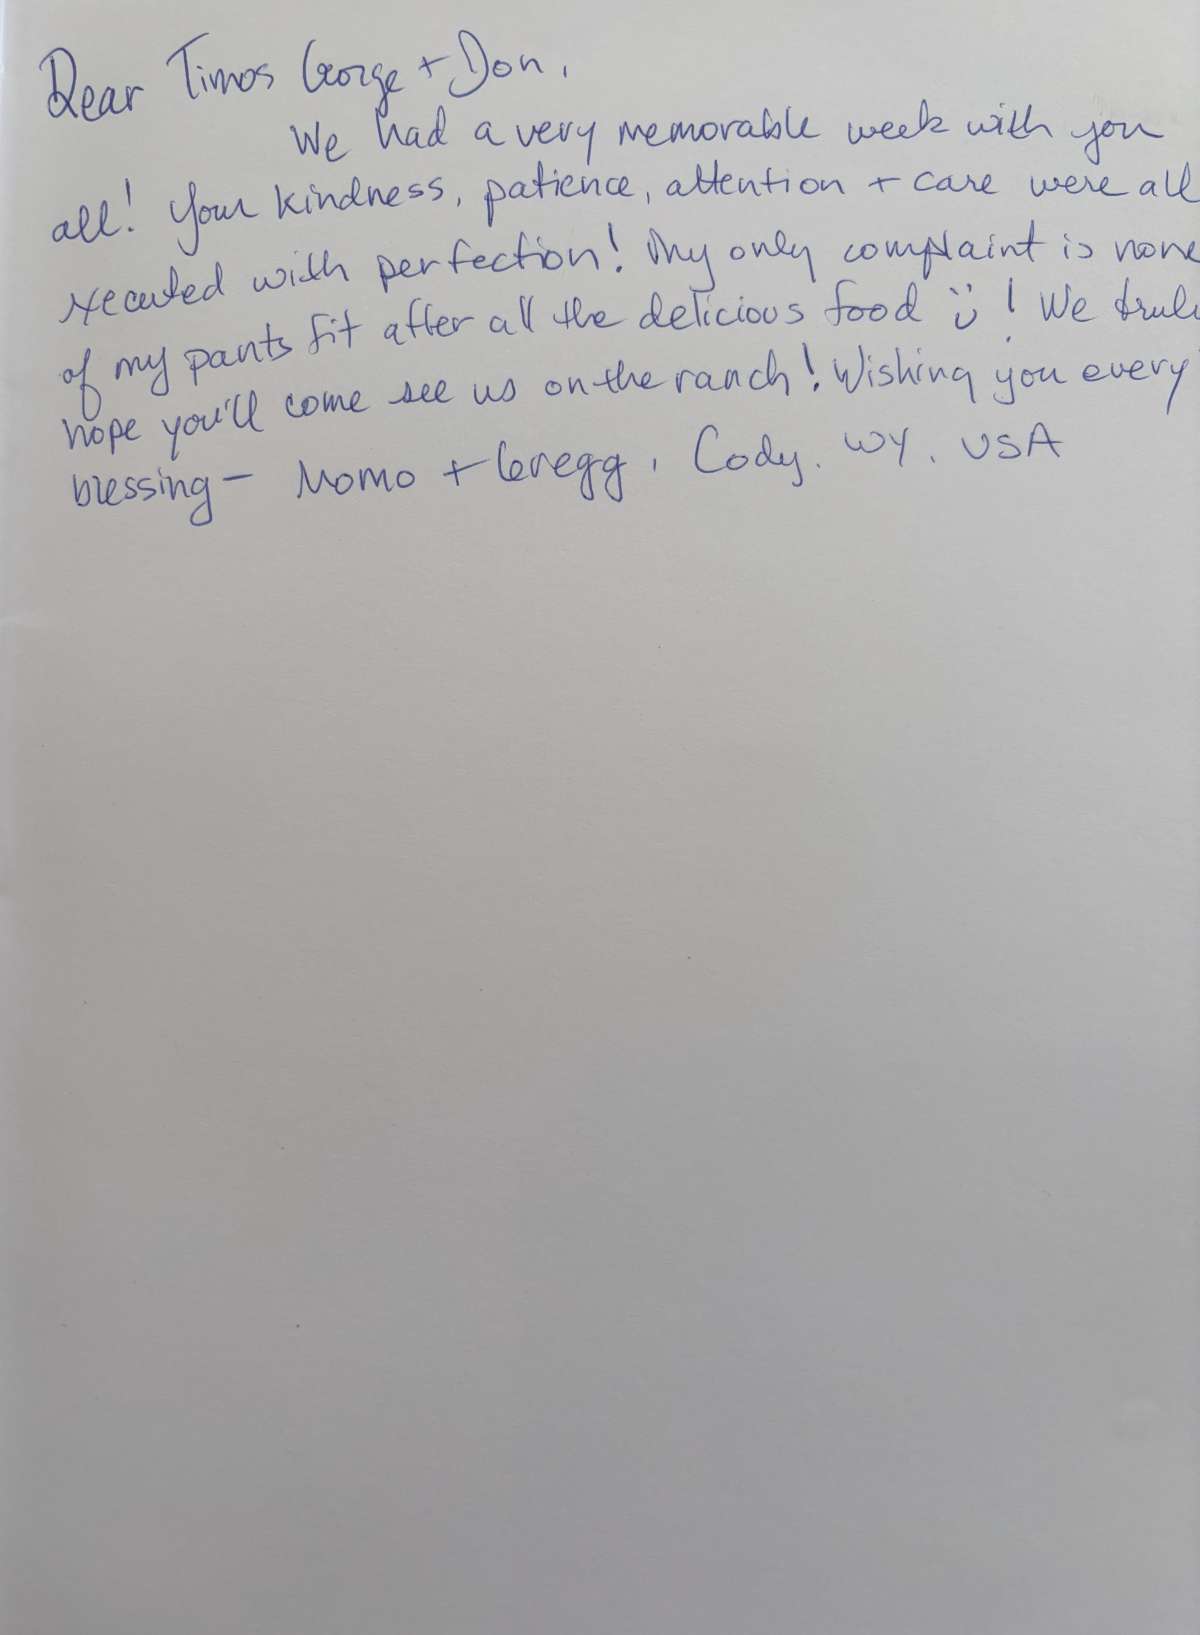 Dear Timos George + Don,
We had a very memorable week with you
all! Your kindness, patience, attention + care were all
xecuted with perfection! My only complaint is none
of my pants fit after all the delicious food :) ! We trul
hope you'll come see us on the ranch! Wishing you every
blessing - Momo + Gregg, Cody, WY, USA